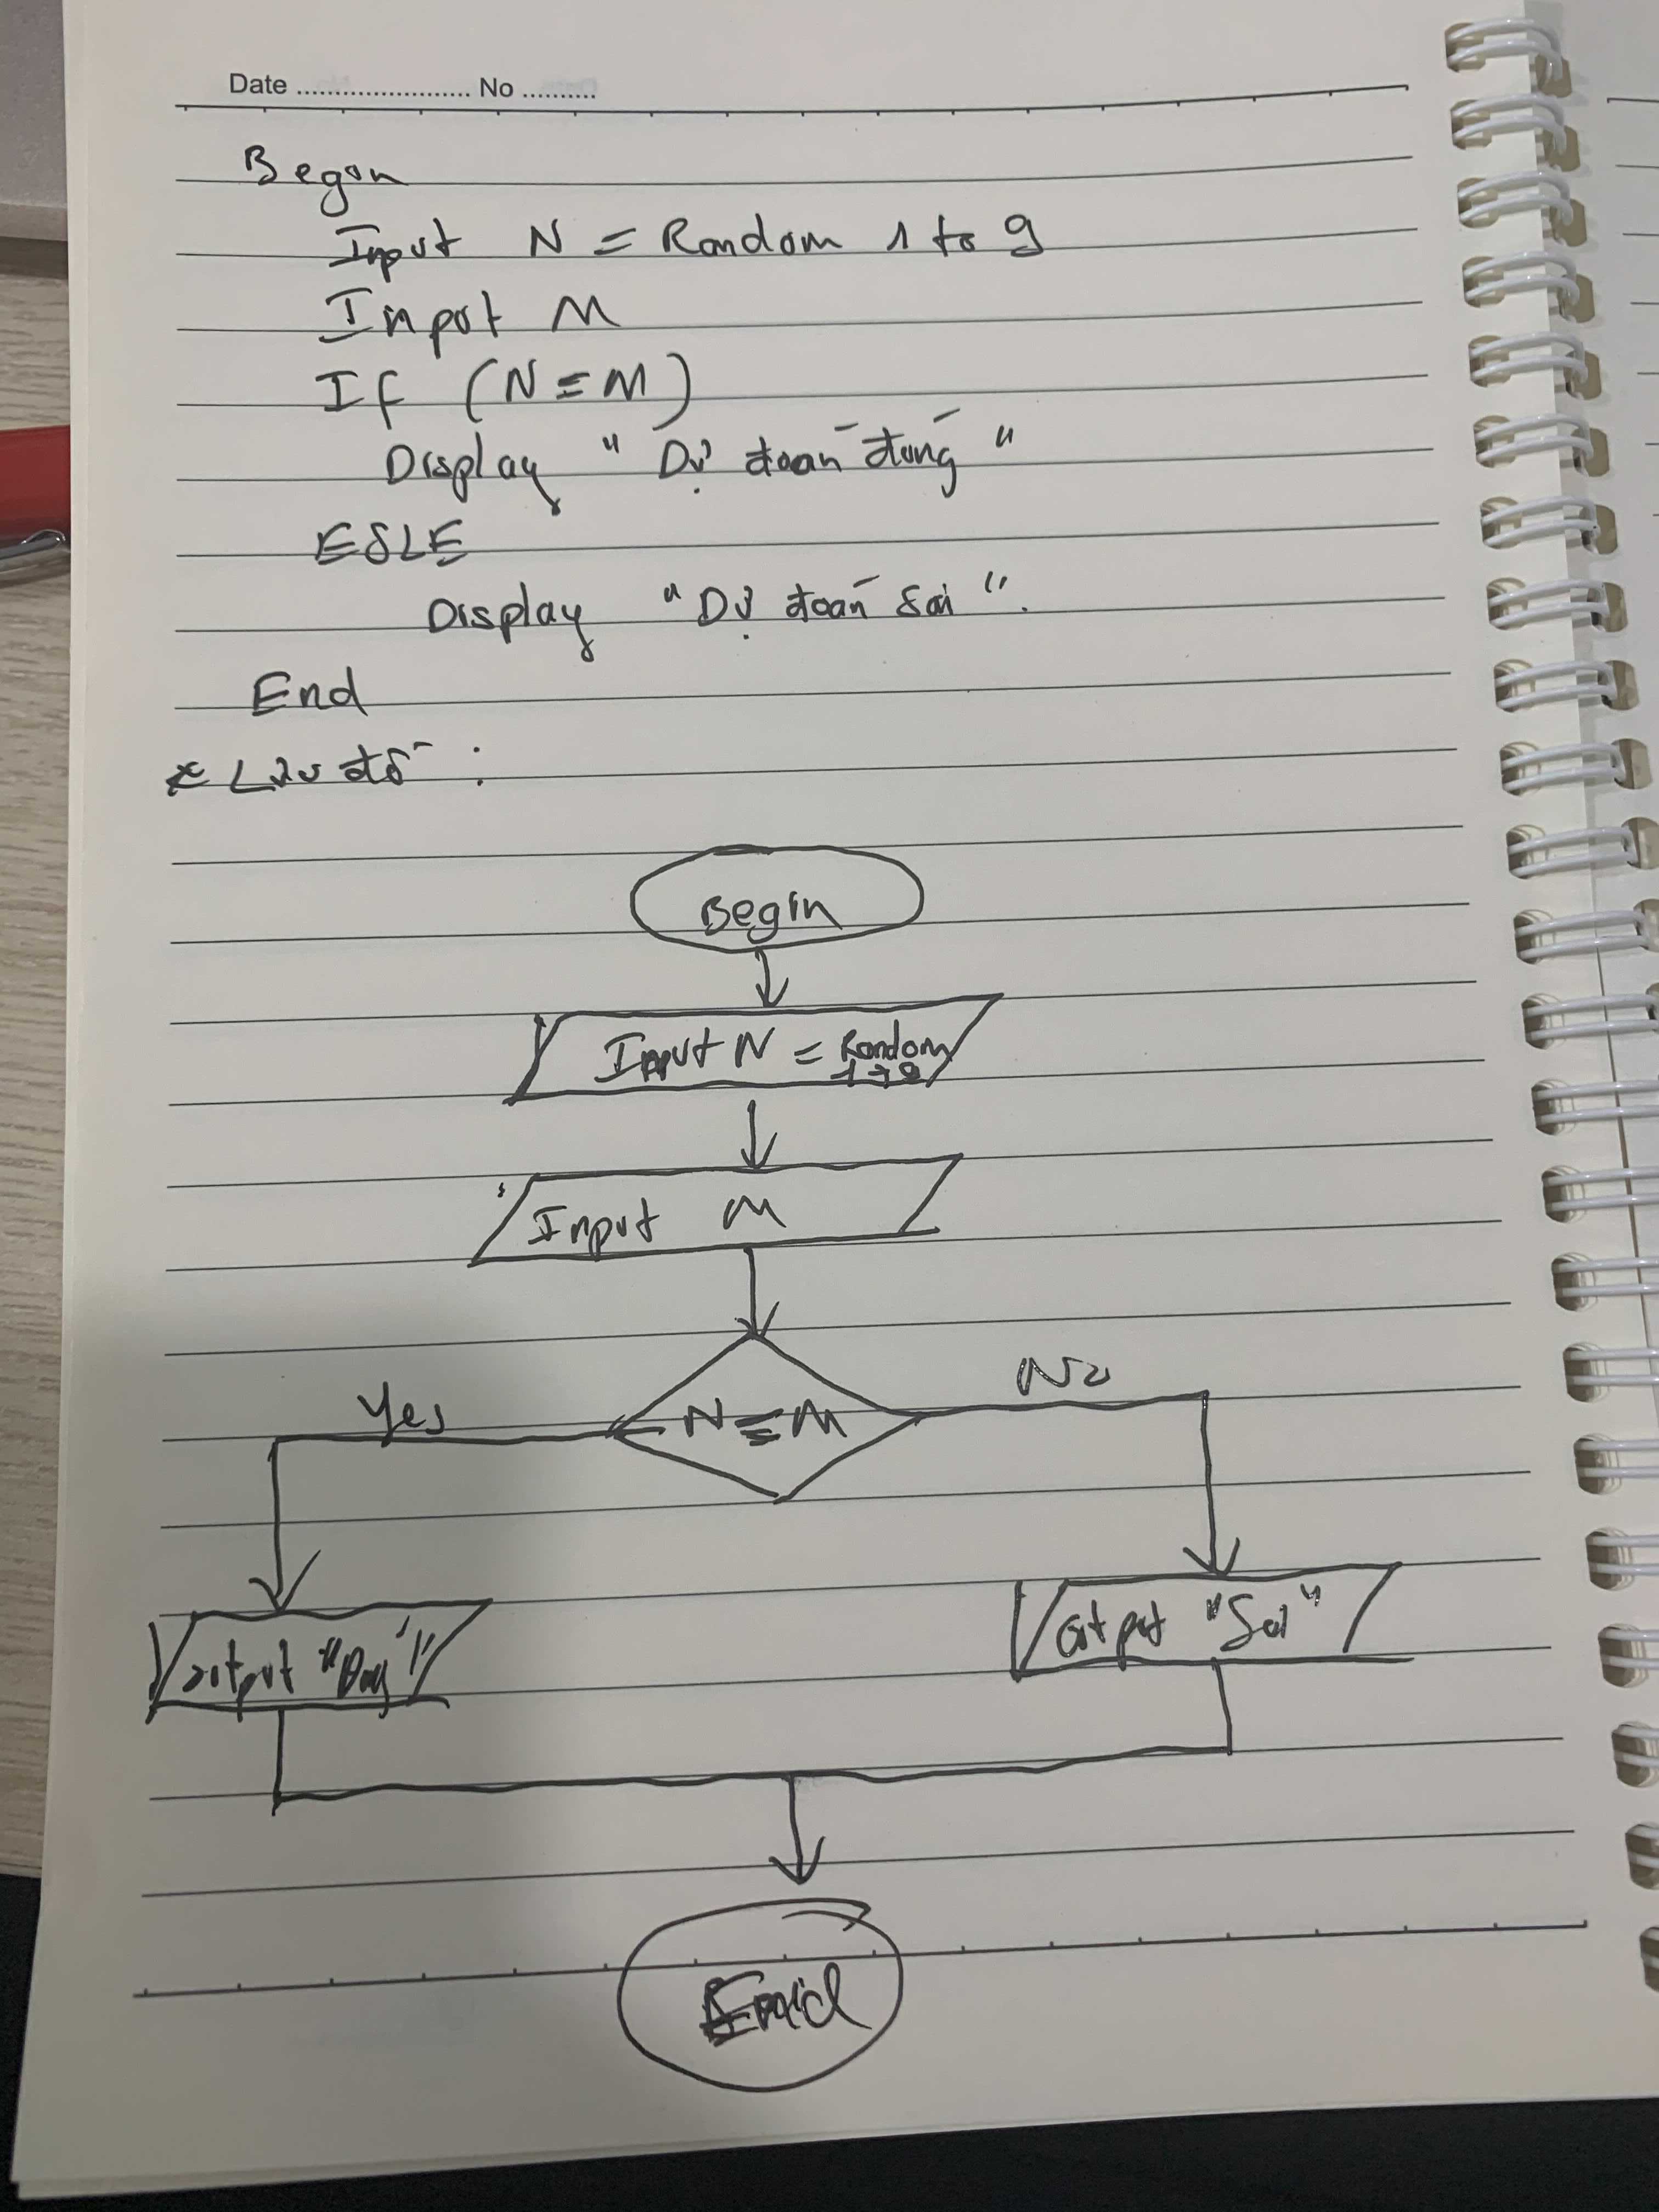 Date ........................ No ..........
Begin
Input N = Random 1 to 9
Input M
If (N = M)
Display " Dự đoán đúng "
ESLE
Display "Dự đoán sai ".
End
* Lưu đồ :
Begin
Input N = Random
1 → 9
Input M
N = M
Yes
No
Output "Sai"
output "Đúng"
End